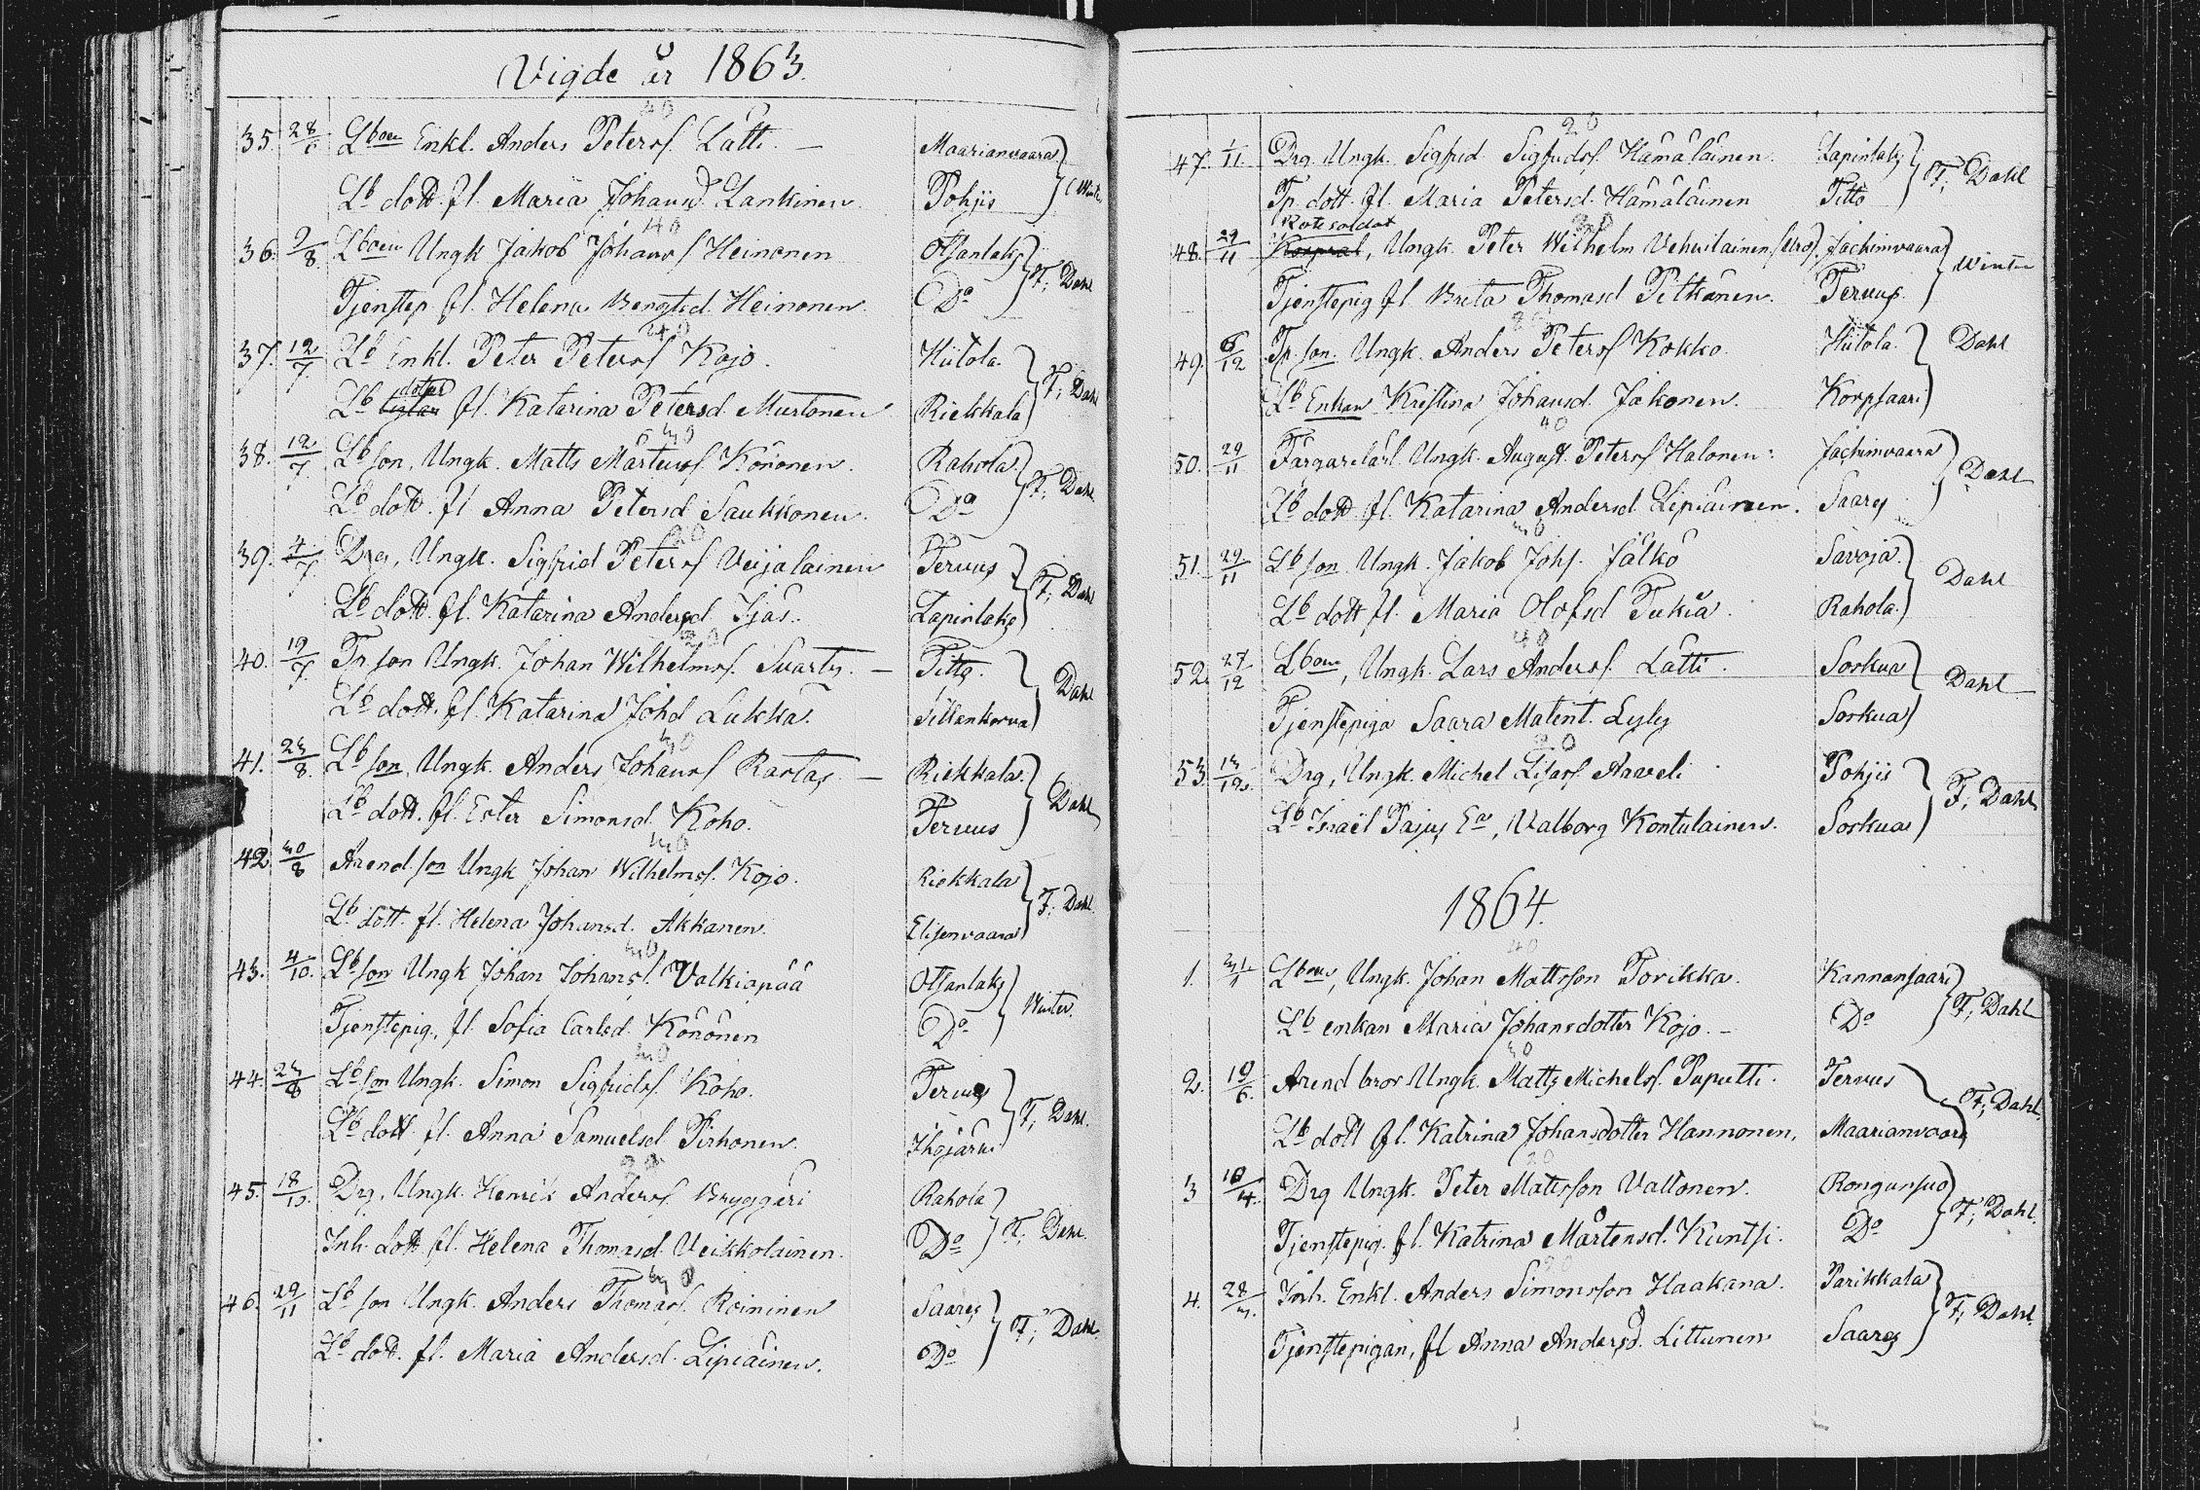 Vigde år 1863.
40
35. 28/6 Lbom Enkl. Anders Petersf Lätti. — Maarianvaara
Lb dott. fl. Maria Johansd Lankinen. Pohjis
40
36. 9/8. Lbom Ungk Jakob Johansf Heinonen Otsanlaks F; Dahl
Tjenstep fl. Helena Bengtsd. Heinonen. Do
40
37. 12/7 Lb Enkl. Peter Petersf Kojo. Hiitola. F; Dahl
dotter
Lb fl. Katarina Petersd Murtonen Riekkala
30
38. 12/7 Lb son, Ungk. Matts Mårtensf. Könönen. Rahola F; Dahl
Lb dott. fl Anna Petersd Saukkonen. Do
20
39. 4/7. Drg, Ungk. Sigfrid Petersf Veijalainen Tervus F; Dahl
Lb dott. fl. Katarina Andersd Ijäs. Lapinlaks
20
40. 19/7. Tp son Ungk. Johan Wilhelmsf. Svarts. — Titto. Dahl
Lb dott. fl. Katarina Johd Lukka. Sillankorva
30
41. 23/8. Lb son, Ungk. Anders Johansf Rastas — Riekkala. Dahl
Lb dott. fl. Ester Simonsd. Koho. Tervus
30
42. 30/8 Arend. son Ungk Johan Wilhelmsf. Kojo. Riekkala F; Dahl.
Lb dott. fl. Helena Johansd. Akkanen. Elisenvaara
30
43. 4/10. Lb son Ungk Johan Johansf. Valkiapää Otsanlaks Winter.
Tjenstepig, fl. Sofia Carlsd. Könönen Do
30
44. 23/8 Lb son Ungk. Simon Sigfridsf. Koho. Tervus F; Dahl.
Lb dott. fl. Anna Samuelsd Pirhonen. Ihojärvi
20
45. 18/10. Drg, Ungk. Henrik Andersf. Bryggäri Rahola F; Dahl.
Inh. dott. fl. Helena Thomasd. Veikkolainen. Do
30
46. 29/11 Lb son Ungk. Anders Thomasf. Roininen Saares F; Dahl.
Lb dott. fl. Maria Andersd. Lipiäinen. Do
20
47. 1/11. Drg. Ungk. Sigfrid Sigfridsf. Hämäläinen. Lapinlaks F; Dahl
Tp. dott. fl. Maria Petersd. Hämäläinen Titto
Rotesoldat 20
48. 29/11 Korpral, Ungk. Peter Wilhelm Vehviläinen Jachimvaara Winter
Tjenstepig fl. Brita Thomasd Pitkänen. Tervus.
20
49. 6/12 Tp. son. Ungk. Anders Petersf Kokko. Hiitola. Dahl
Lb Enkan Kristina Johansd. Jakonen. Korpsaari
40
50. 29/11 Färgarelärl. Ungk. August. Petersf Halonen. Jachimvaara Dahl
Lb dott fl. Katarina Andersd Lipiäinen. Saares
30
51. 29/11 Lb son Ungk. Jakob Johf. Jälkö Savoja. Dahl
Lb dott fl. Maria Olofsd Tukia. Rahola.
40
52. 27/12 Lbom, Ungk. Lars Andersf. Lätti. Sorkua Dahl
Tjenstepiga Saara Matint. Lyly Sorkua
20
53. 13/12. Drg, Ungk. Michel Lisasf. Aaveli Pohjis F; Dahl
Lb Israël Pasus Ea, Valborg Kontulainen. Sorkua
1864.
40
1. 31/1 Lbom, Ungk. Johan Mattsson Torikka. Kannansaari F; Dahl
Lb enkan Maria Johansdotter Kojo. – Do
30
2. 19/6. Arend bror Ungk. Matts Michelsf. Paputti. Tervus F; Dahl.
Lb dott fl. Katrina Johansdotter Hannonen. Maarianvaara
20
3 10/4. Drg Ungk. Peter Mattsson Valtonen. Rongunsuo F; Dahl.
Tjenstepig. fl. Katrina Mårtensd. Kuntsi. Do
20
4. 28/3. Inh. Enkl. Anders Simonsson Haakana. Parikkala F; Dahl.
Tjenstepigan, fl Anna Andersd. Littunen Saares